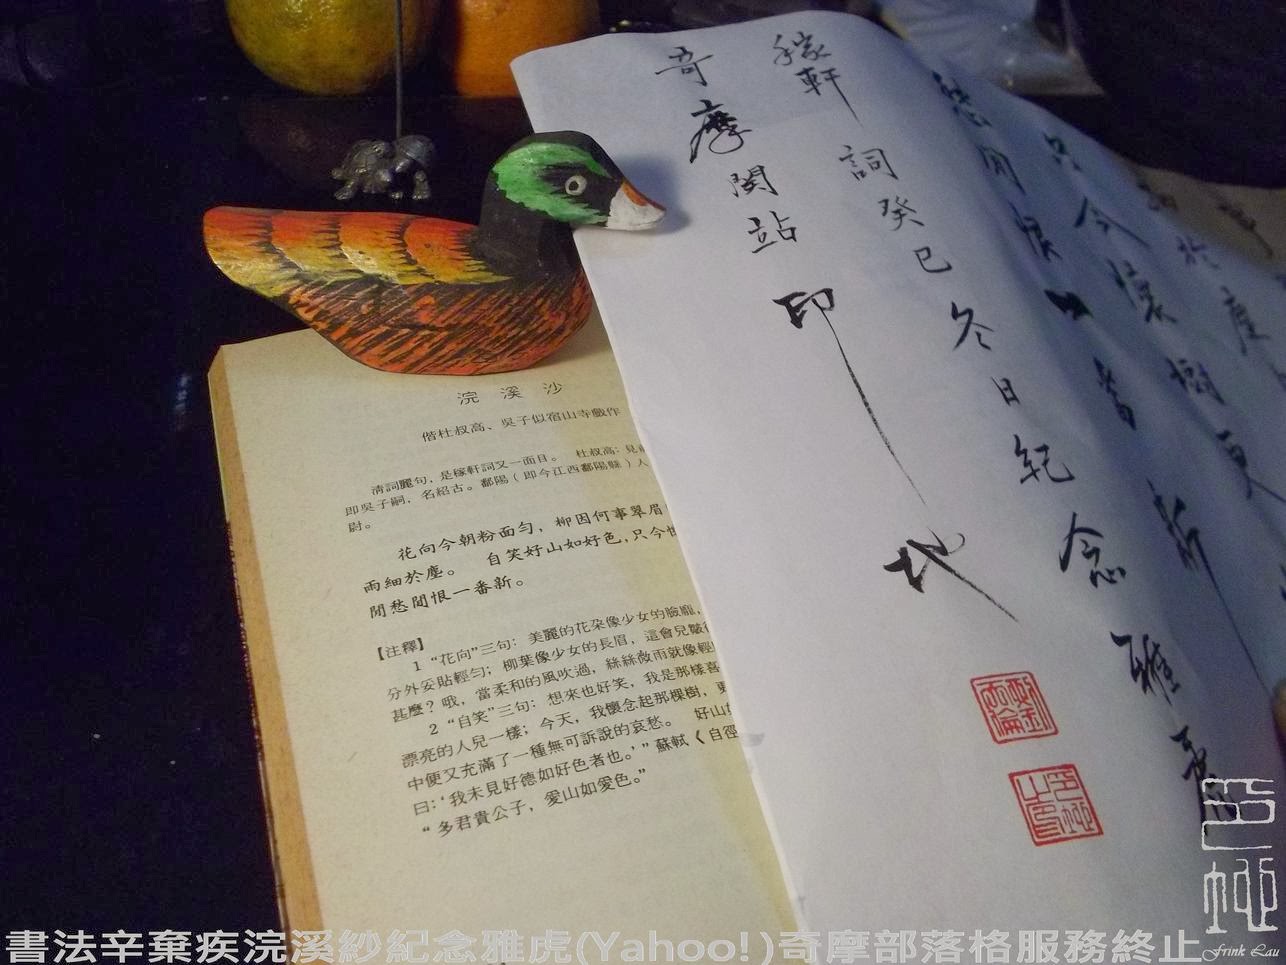 浣溪沙
偕杜叔高、吳子似宿山寺戲作
清詞麗句，是稼軒詞又一面目。 杜叔高：見
即吳子嗣，名紹古。鄱陽（即今江西鄱陽縣）人
尉。
花向今朝粉面勻，柳因何事翠眉
雨細於塵。 自笑好山如好色，只今懷
閒愁閒恨一番新。
【注釋】
1 “花向”三句：美麗的花朵像少女的臉龐，
分外妥貼輕勻；柳葉像少女的長眉，這會兒皺
甚麼？哦，當柔和的風吹過，絲絲微雨就像輕
2 “自笑”三句：想來也好笑，我是那樣喜
漂亮的人兒一樣；今天，我懷念起那棵樹，更
中便又充滿了一種無可訴說的哀愁。 好山如
曰：‘我未見好德如好色者也。’”蘇軾《自徑
“多君貴公子，愛山如愛色。”
於塵
只今懷樹更
愁閒恨一番新
稼軒詞癸巳冬日紀念雅虎
奇摩關站
印地
書法辛棄疾浣溪紗紀念雅虎(Yahoo!)奇摩部落格服務終止
Frink Lau